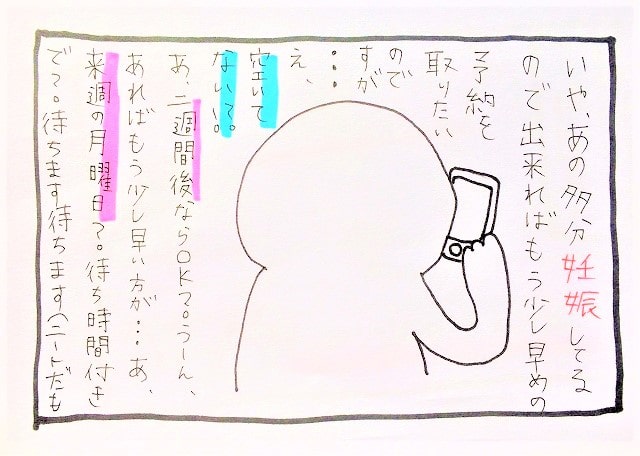 いや、あの多分妊娠してる
ので出来ればもう少し早めの
予約を
取りたい
ので
すが
…
え、
空いて
ない?。
あ、二週間後ならOK?。うーん、
あればもう少し早い方が…あ、
来週の月曜日?。待ち時間付き
で?。待ちます待ちます(ニートだも